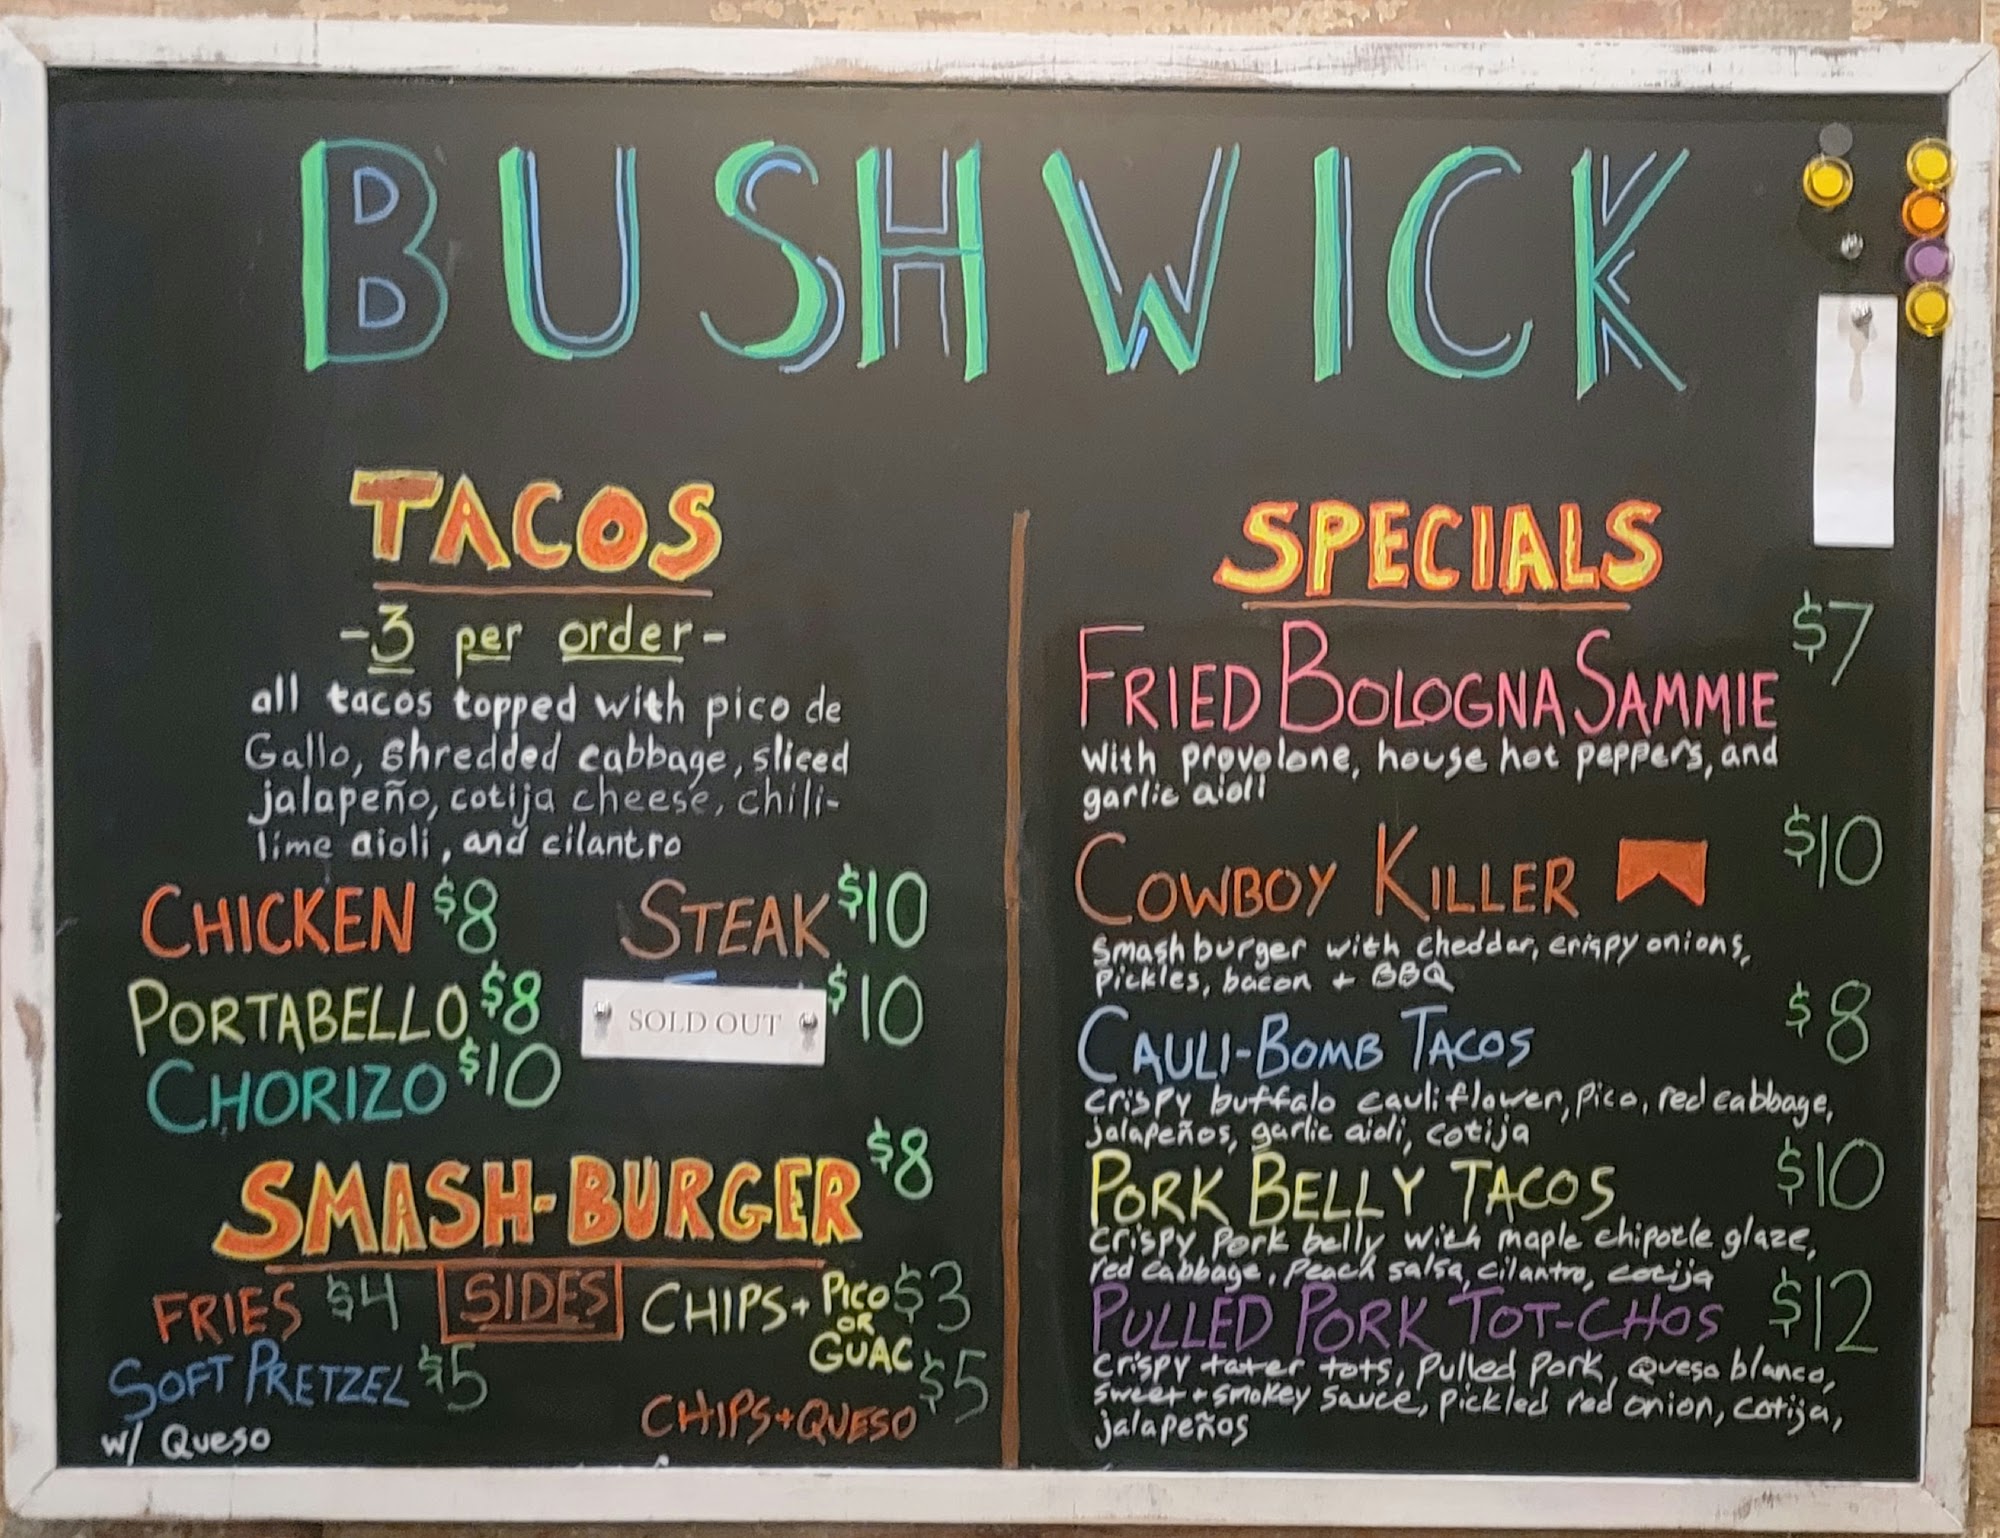 BUSHWICK
TACOS
-3 per order-
all tacos topped with pico de
Gallo, shredded cabbage, sliced
jalapeño, cotija cheese, chili-
lime aioli, and cilantro
CHICKEN $8
STEAK $10
PORTABELLO $8
SOLD OUT $10
CHORIZO $10
SMASH-BURGER $8
SIDES
FRIES $4
CHIPS + PICO OR GUAC $3
SOFT PRETZEL $5
w/ Queso
CHIPS + QUESO $5
SPECIALS
FRIED BOLOGNA SAMMIE $7
with provolone, house hot peppers, and
garlic aioli
COWBOY KILLER $10
smash burger with cheddar, crispy onions,
pickles, bacon + BBQ
CAULI-BOMB TACOS $8
crispy buffalo cauliflower, pico, red cabbage,
jalapeños, garlic aioli, cotija
PORK BELLY TACOS $10
crispy pork belly with maple chipotle glaze,
red cabbage, peach salsa, cilantro, cotija
PULLED PORK TOT-CHOS $12
crispy tater tots, pulled pork, queso blanco,
sweet + smokey sauce, pickled red onion, cotija,
jalapeños